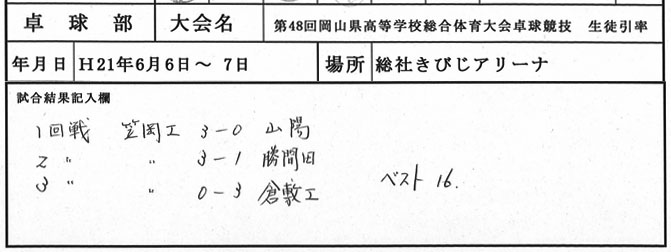 卓球部 大会名 第48回岡山県高等学校総合体育大会卓球競技 生徒引率
年月日 H21年6月6日～ 7日 場所 総社きびじアリーナ
試合結果記入欄
1回戦 笠岡工 3-0 山陽
2 〃 〃 3-1 勝間田
3 〃 〃 0-3 倉敷工 ベスト16.